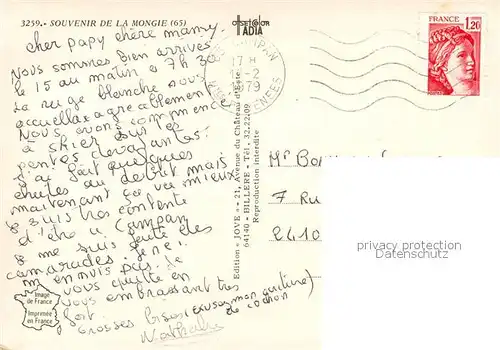 3259.- SOUVENIR DE LA MONGIE (65)
OFFSETCOLOR
IADIA
FRANCE
1,20
CAMPAN
17 H
-2
1979
PYRENEES
cher papy chère mamy.
Nous sommes bien arrivés
le 15 au matin à 7h30
La neige blanche nous
accueilla agreablement
Nous avons commencé
à skier sur
pentes
J'ai fait quelques
chutes au début mais
maintenant ça va mieux
Je suis très contente
d'être à Campan
Je me suis faite des
camarades. Je ne
m'ennuis pas. Je
vous quitte en
vous embrassant très
fort.
Grosses bises (excusez mon écriture)
de cochon
Nathalie
Edition « JOVE » - 21, Avenue du Château d'Este
64140 - BILLERE - Tél. 32.22.09
Reproduction interdite
Mr
7 Rue
2410
privacy protection
Datenschutz
Image
de France
Imprimée
en France